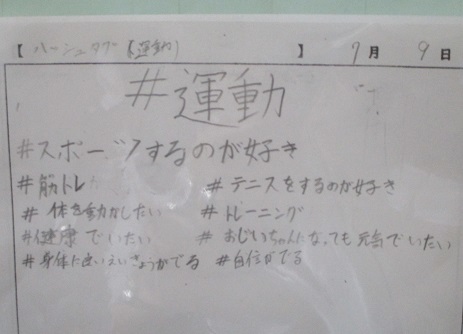 【 ハッシュタグ(運動) 】 9月 9日
#運動
#スポーツするのが好き
#筋トレ #テニスをするのが好き
#体を動かしたい #トレーニング
#健康でいたい #おじいちゃんになっても元気でいたい
#身体に良いえいきょうがでる #自信がでる